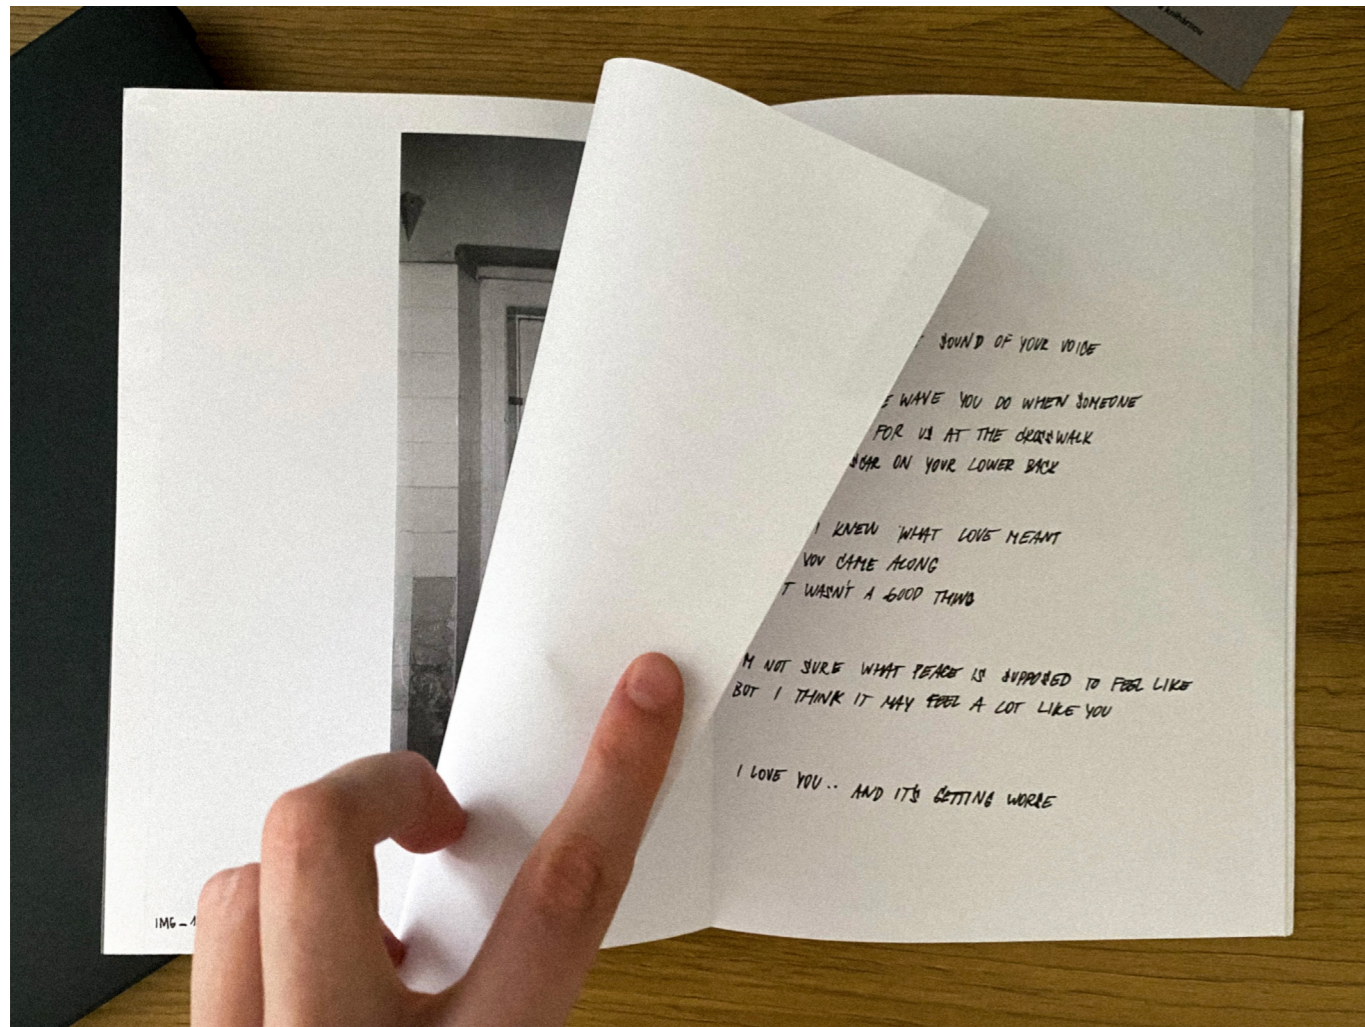 knihárnou
SOUND OF YOUR VOICE
WAVE YOU DO WHEN SOMEONE
FOR US AT THE CROSSWALK
SCAR ON YOUR LOWER BACK
I KNEW WHAT LOVE MEANT
YOU CAME ALONG
T WASN'T A GOOD THING
M NOT SURE WHAT PEACE IS SUPPOSED TO FEEL LIKE
BUT I THINK IT MAY FEEL A LOT LIKE YOU
I LOVE YOU.. AND IT'S GETTING WORSE
IMG_1